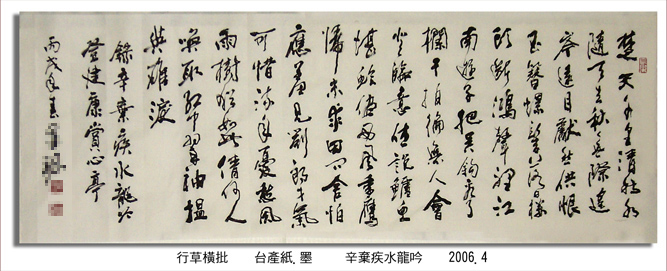 楚天千里清秋水
隨天去秋無際遙
岑遠目獻愁供恨
玉簪螺髻落日樓
頭斷鴻聲裡江
南遊子把吳鉤看了
欄干拍遍無人會
登臨意休說鱸魚
堪鱠儘西風季鷹
歸未求田問舍怕
應羞見劉郎才氣
可惜流年憂愁風
雨樹猶如此倩何人
喚取紅巾翠袖搵
英雄淚
錄辛棄疾水龍吟
登建康賞心亭
丙戌年春
行草橫批 台產紙.墨 辛棄疾水龍吟 2006.4